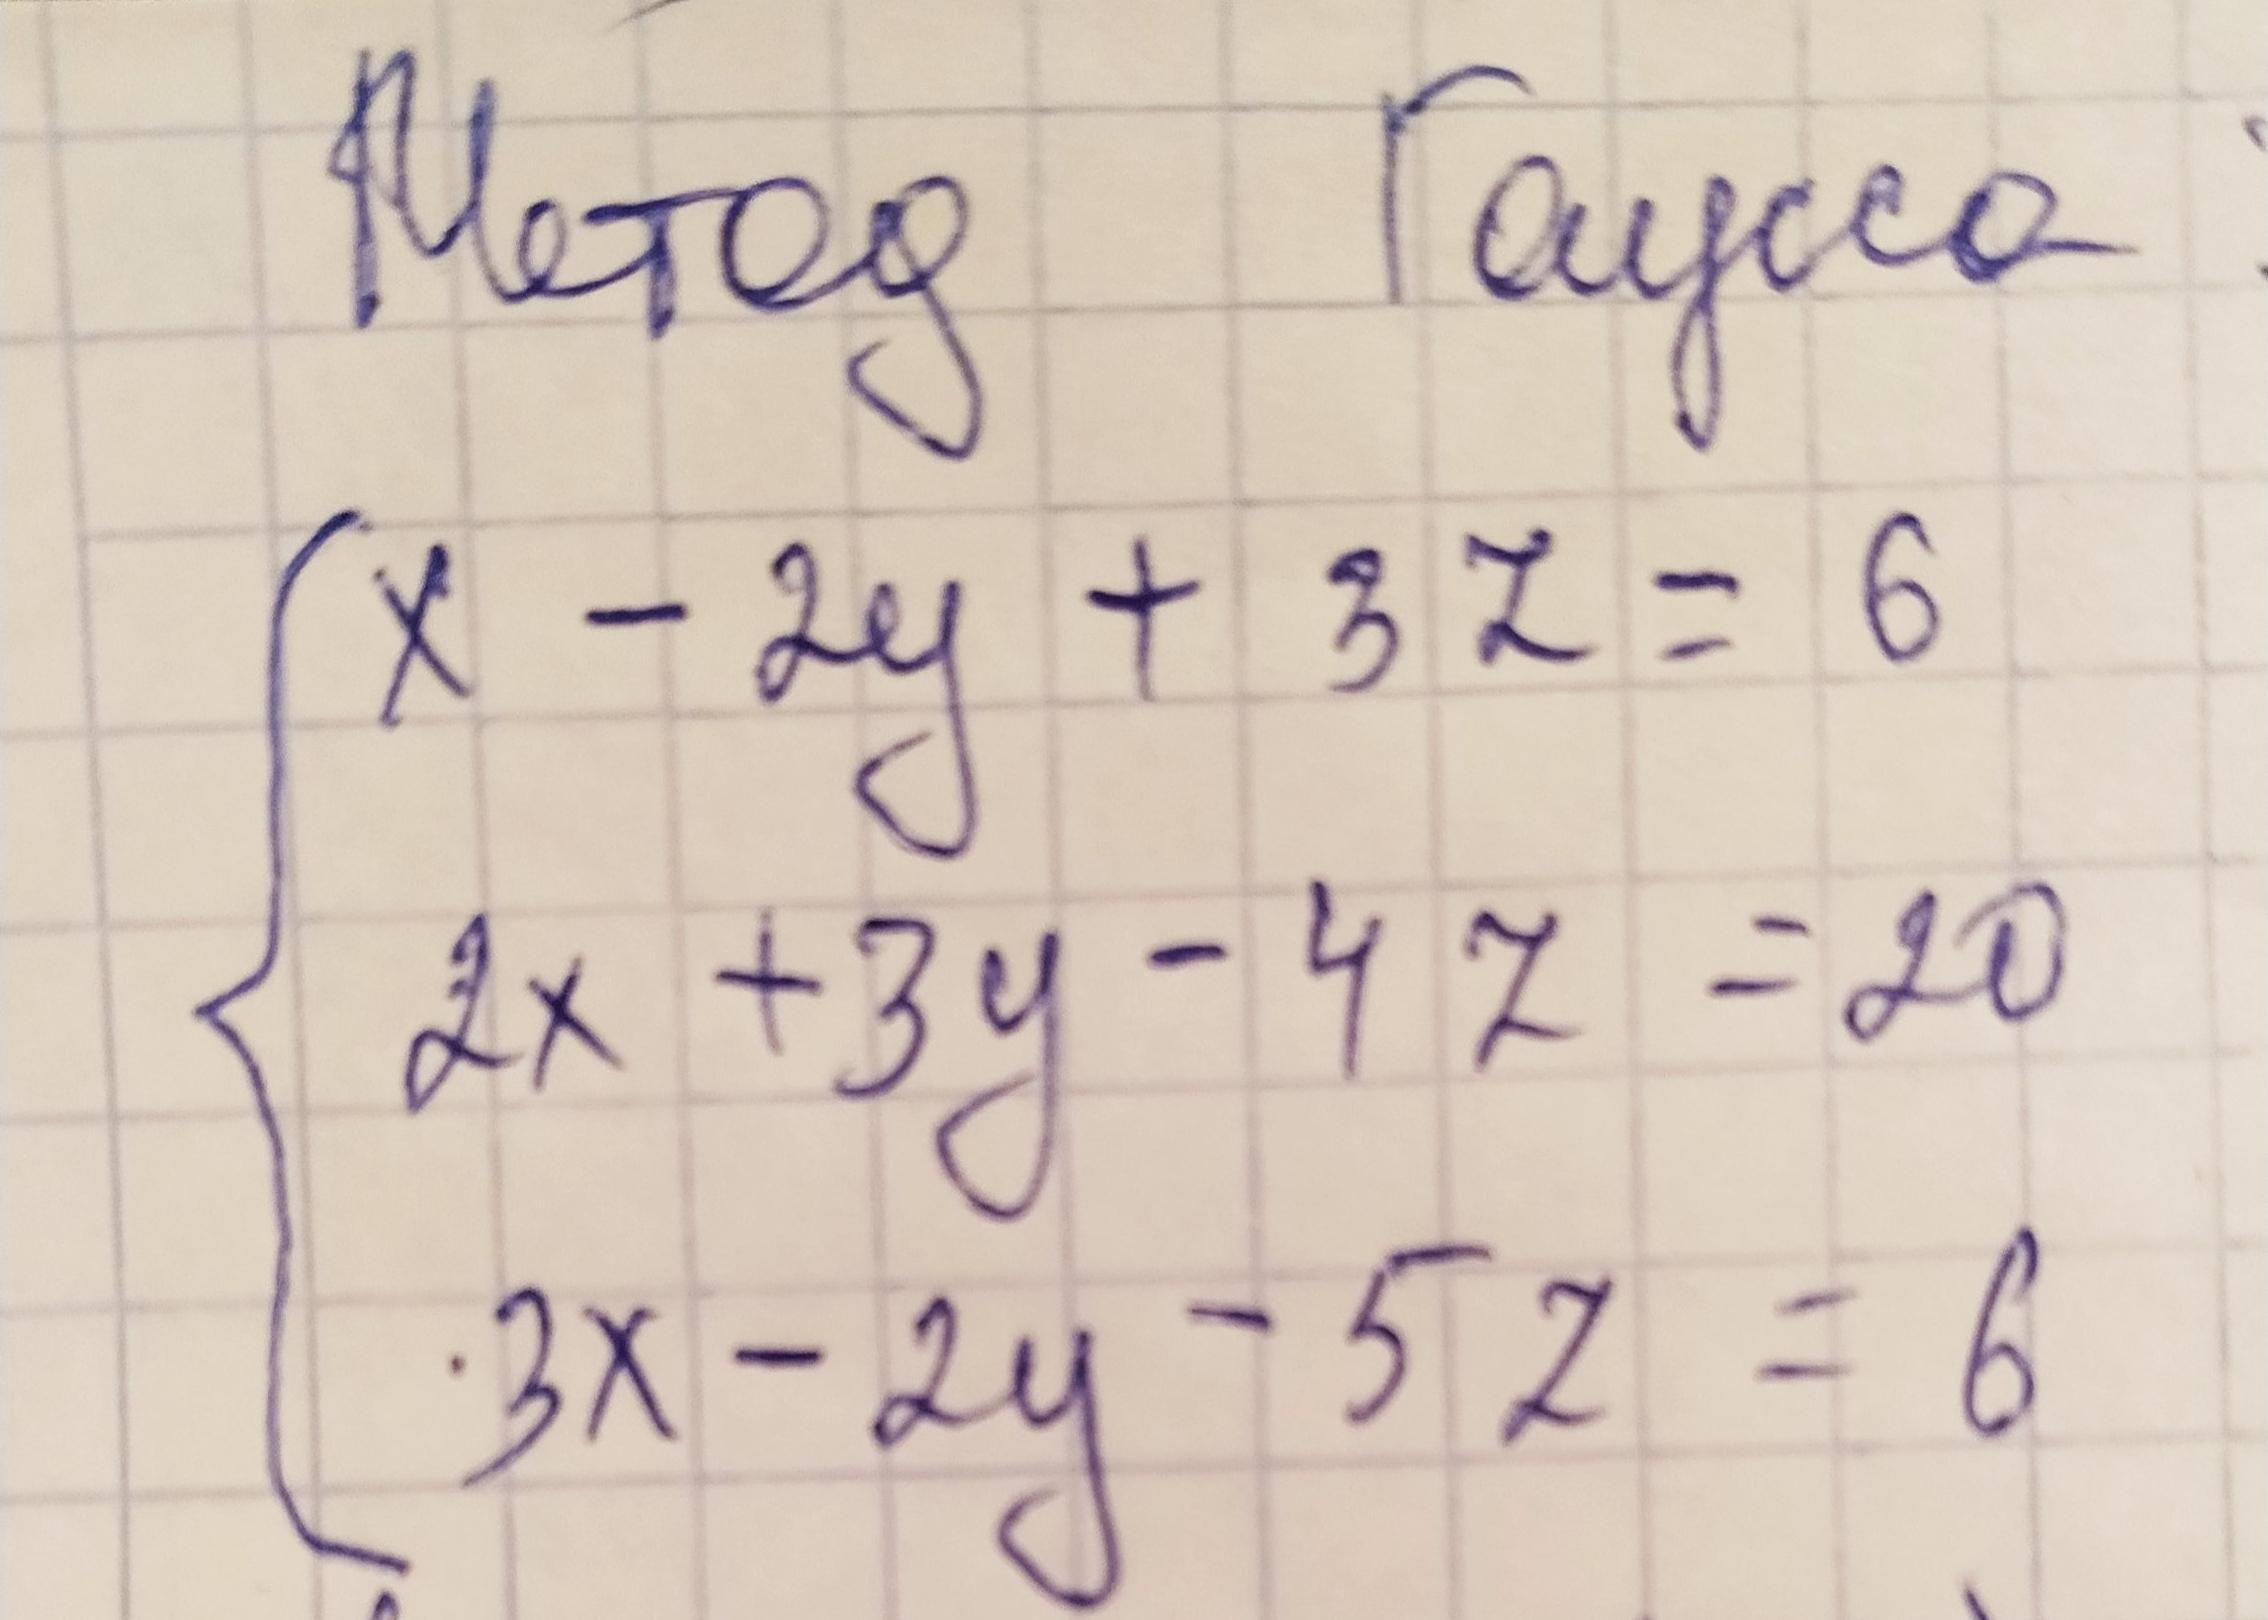 Метод Гаусса:
x - 2y + 3z = 6
2x + 3y - 4z = 20
3x - 2y - 5z = 6